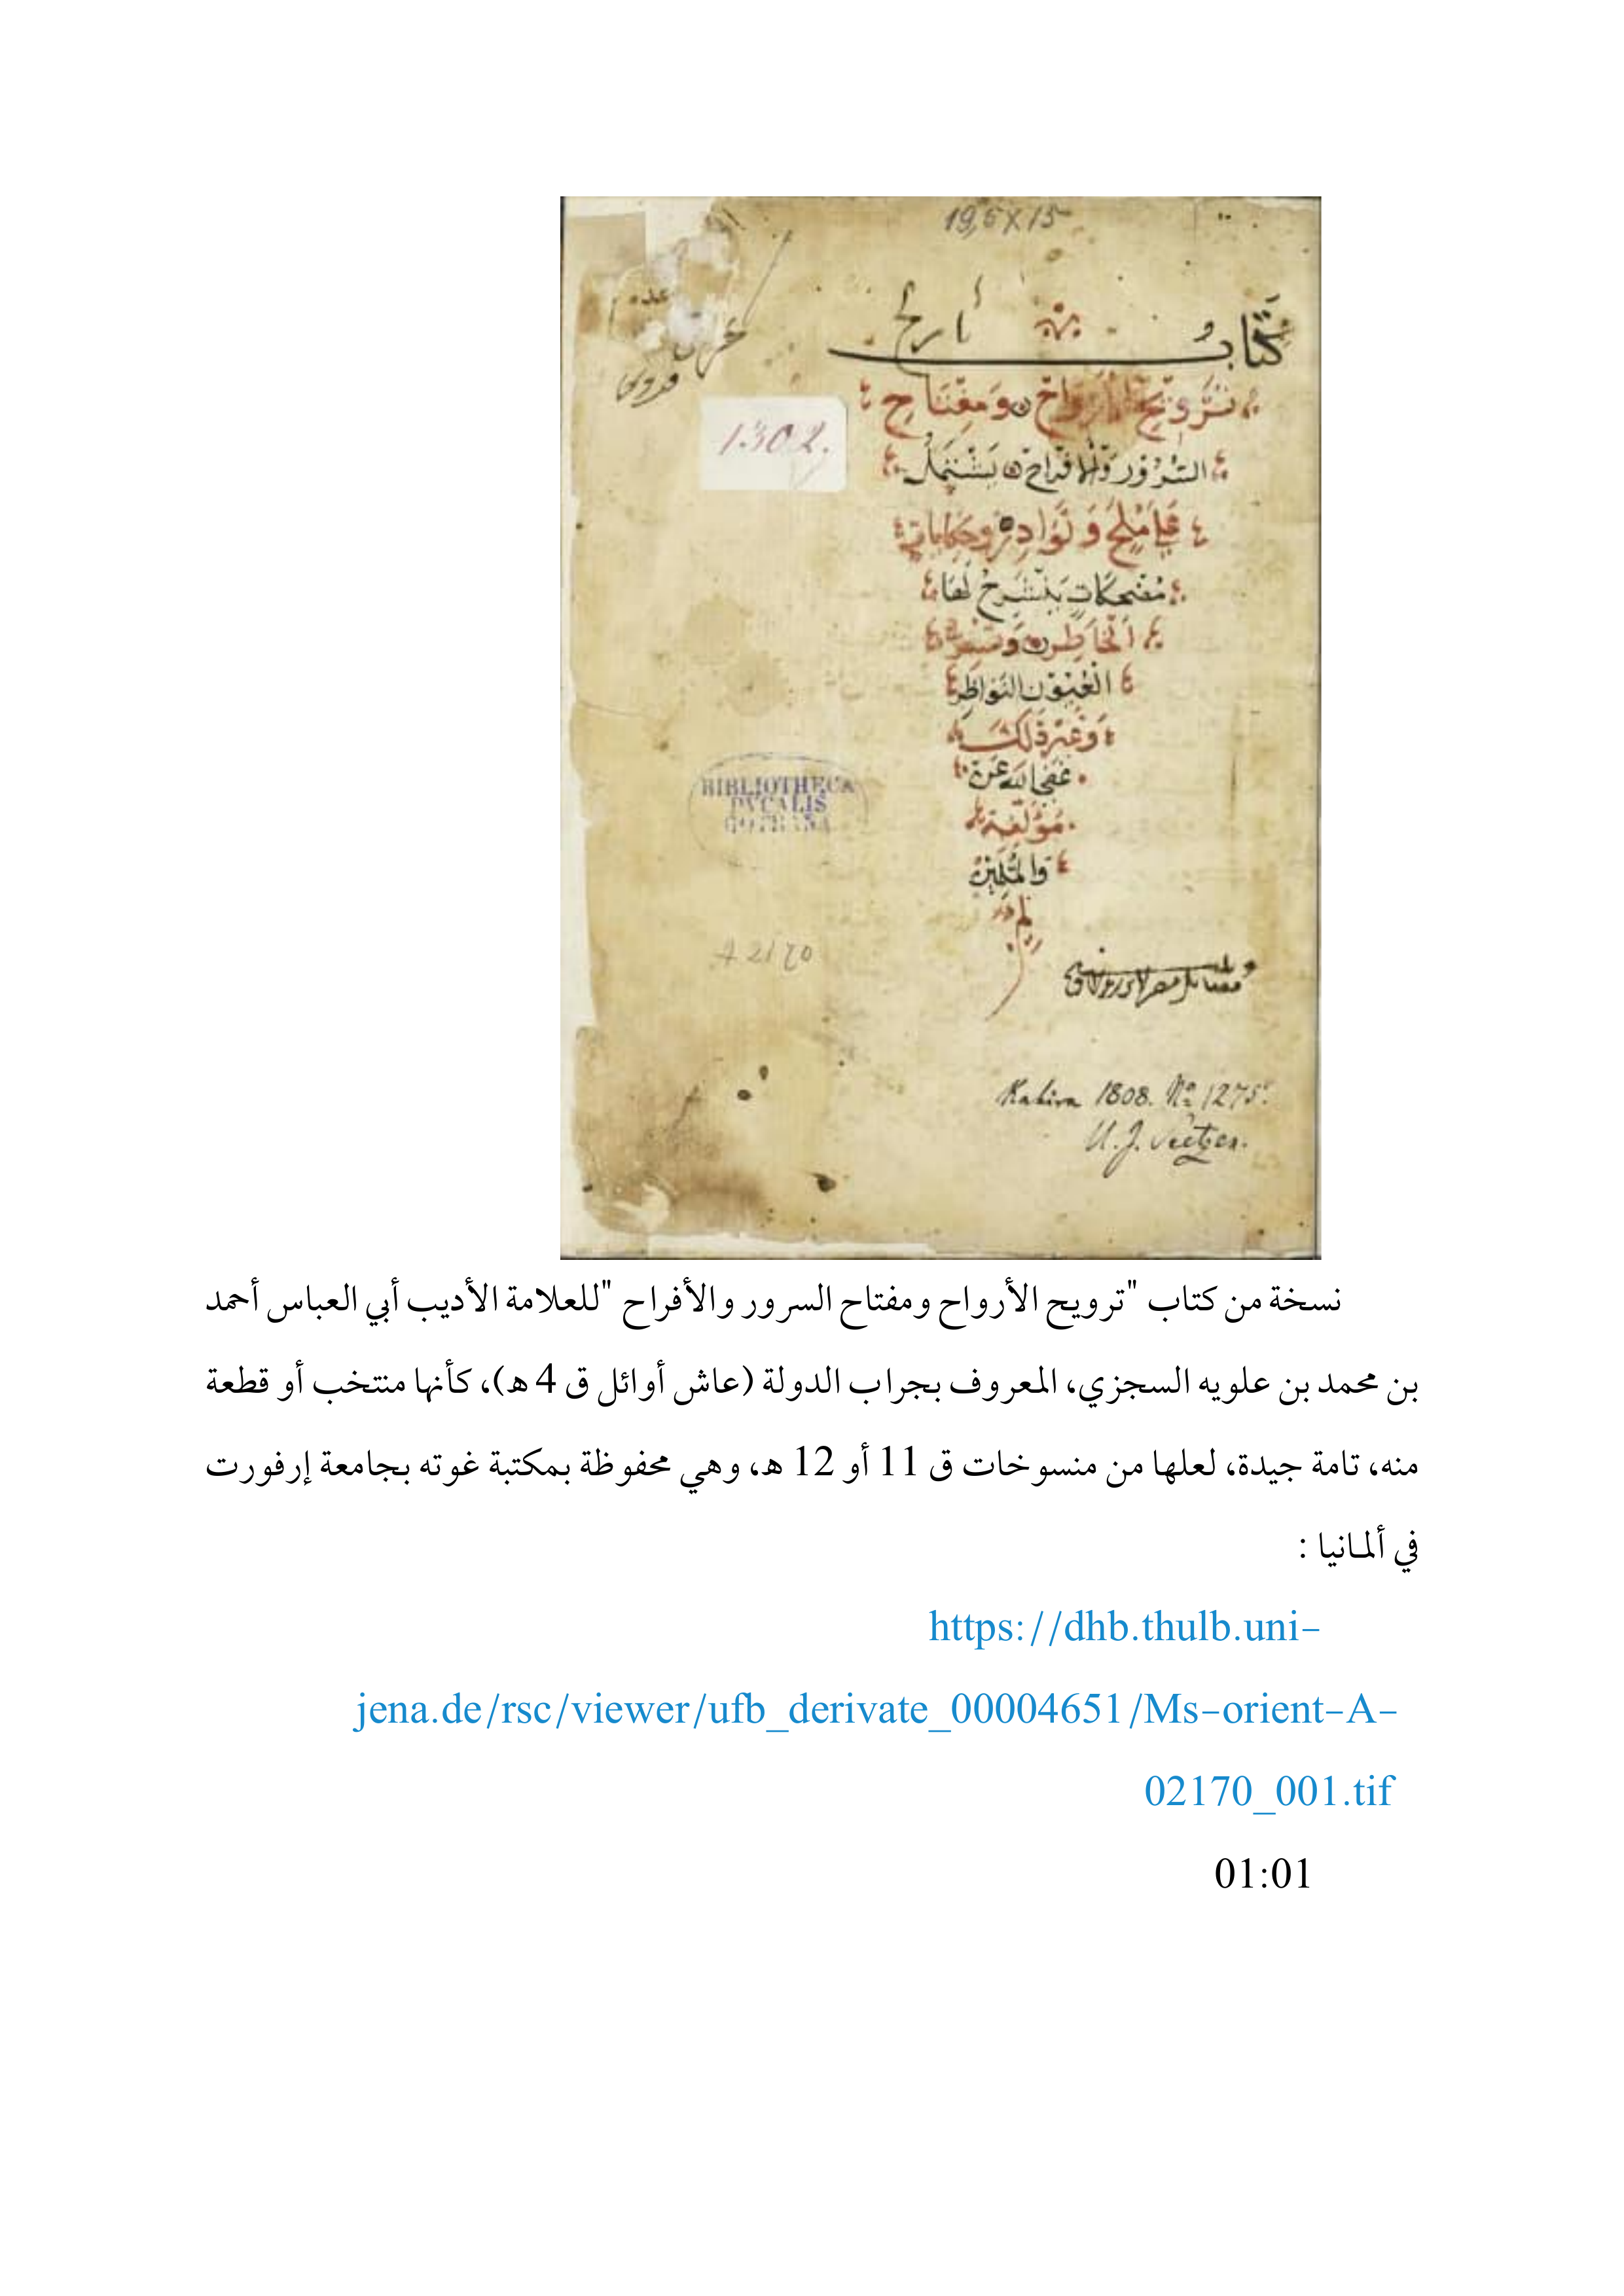 19,5 X 15
كتاب
تاريخ
1302.
ترويح الأرواح ومفتاح
السرور والأفراح يشتمل
على ملح ونوادر وحكايات
مضحكات ينشرح لها
الخاطر وتسر
العيون النواظر
وغير ذلك
عفى الله عن
مؤلفه
والمسلمين
BIBLIOTHECA
DVCALIS
GOTHANA
A 2170
Kahira 1808. No 1275.
U. J. Seetzen.
نسخة من كتاب "ترويح الأرواح ومفتاح السرور والأفراح "للعلامة الأديب أبي العباس أحمد
بن محمد بن علويه السجزي، المعروف بجراب الدولة (عاش أوائل ق 4 هـ)، كأنها منتخب أو قطعة
منه، تامة جيدة، لعلها من منسوخات ق 11 أو 12 هـ، وهي محفوظة بمكتبة غوته بجامعة إرفورت
في ألمانيا :
https://dhb.thulb.uni-
jena.de/rsc/viewer/ufb_derivate_00004651/Ms-orient-A-
02170_001.tif
01:01